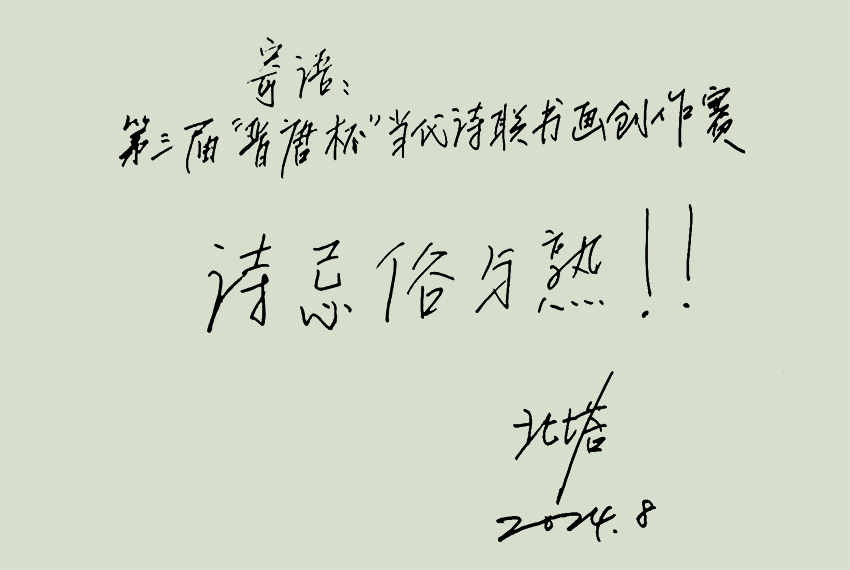 寄语：
第三届“晋唐杯”当代诗联书画创作赛
诗忌俗与熟！！
北塔
2024.8